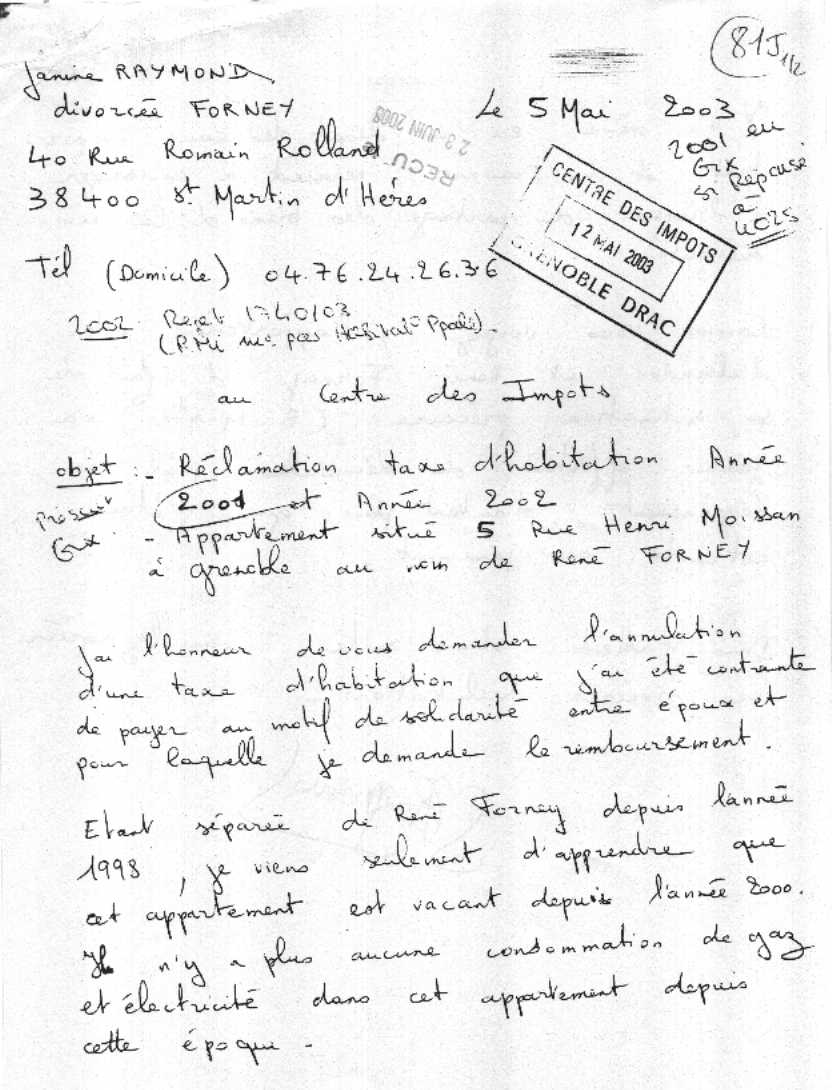 81J 1/2
Janine RAYMOND
divorcée FORNEY
Le 5 Mai 2003
40 Rue Romain Rolland
REÇU LE
23 JUIN 2003
38400 St Martin d'Hères
2001 en
Gx
si Réponse
à
4025
CENTRE DES IMPOTS
12 MAI 2003
GRENOBLE DRAC
Tél (Domicile) 04.76.24.26.36
2002 Rejet 1740/03
(RMi pas Habitat° Ppale)-
au Centre des Impots
objet :- Réclamation taxe d'habitation Année
2001 et Année 2002
Gx - Appartement situé 5 Rue Henri Moissan
à grenoble au nom de René FORNEY
J'ai l'honneur de vous demander l'annulation
d'une taxe d'habitation que j'ai été contrainte
de payer au motif de solidarité entre époux et
pour laquelle je demande le remboursement.
Etant séparée de René Forney depuis l'année
1998, je viens seulement d'apprendre que
cet appartement est vacant depuis l'année 2000.
Il n'y a plus aucune consommation de gaz
et électricité dans cet appartement depuis
cette époque -